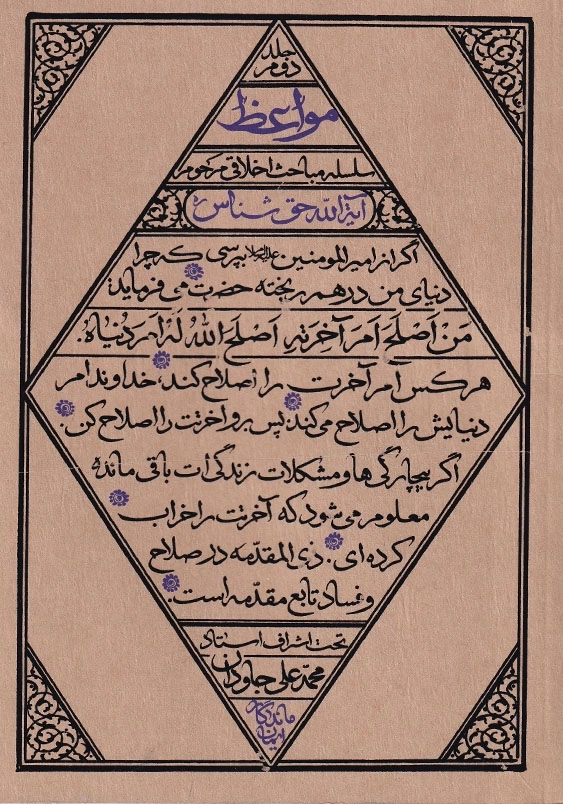 جلد
دوم
مواعظ
سلسله مباحث اخلاقی مرحوم
آیة الله حق شناس ره
اگر از امیرالمومنین علیه السلام بپرسی که چرا
دنیای من درهم ریخته حضرت می فرماید:
مَنْ اَصْلَحَ اَمْرَ آخِرَتِهِ اَصْلَحَ اللهُ لَهُ اَمْرَ دُنْیاهُ.
هر کس امر آخرت را اصلاح کند، خداوند امر
دنیایش را اصلاح می کند؛ پس برو آخرتت را اصلاح کن.
اگر بیچارگی ها و مشکلات زندگی ات باقی مانده
معلوم می شود که آخرتت را خراب
کرده ای. ذی المقدمه در صلاح
و فساد تابع مقدّمه است.
تحت اشراف استاد
محمّد علی جاودان
ماندگار